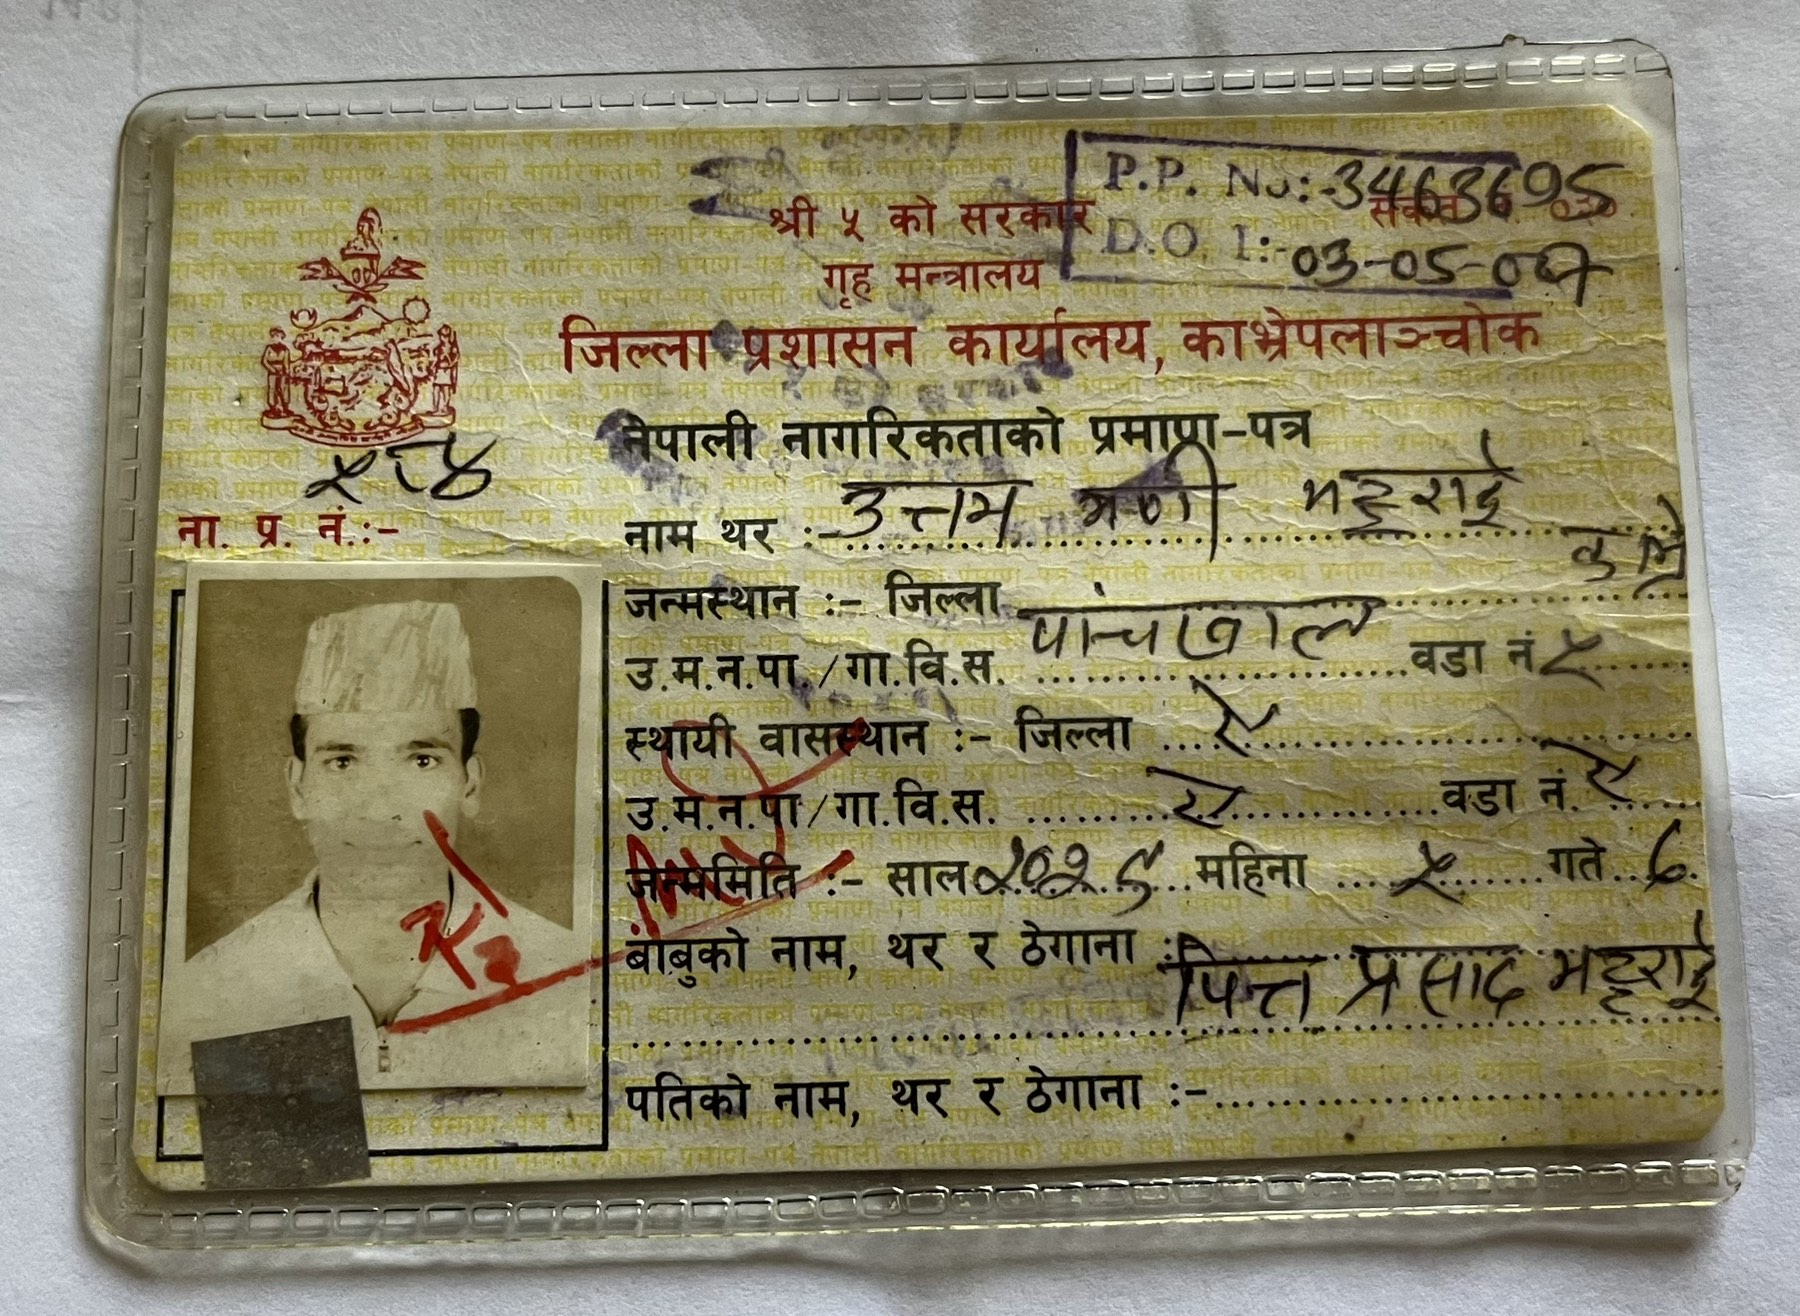 P.P. No:-3463695
श्री ५ को सरकार
D.O.I:-03-05-07
गृह मन्त्रालय
जिल्ला प्रशासन कार्यालय, काभ्रेपलाञ्चोक
नेपाली नागरिकताको प्रमाण-पत्र
ना. प्र. नं.:-
नाम थर :- उत्तम मणी भट्टराई
जन्मस्थान :- जिल्ला काभ्रे
उ.म.न.पा./गा.वि.स. पांचखाल वडा नं ५
स्थायी वासस्थान :- जिल्ला ऐ
उ.म.न.पा/गा.वि.स. ऐ वडा नं. ऐ
जन्ममिति :- साल २०२९ महिना ५ गते ८
बाबुको नाम, थर र ठेगाना :- प्रसाद भट्टराई
पतिको नाम, थर र ठेगाना :-